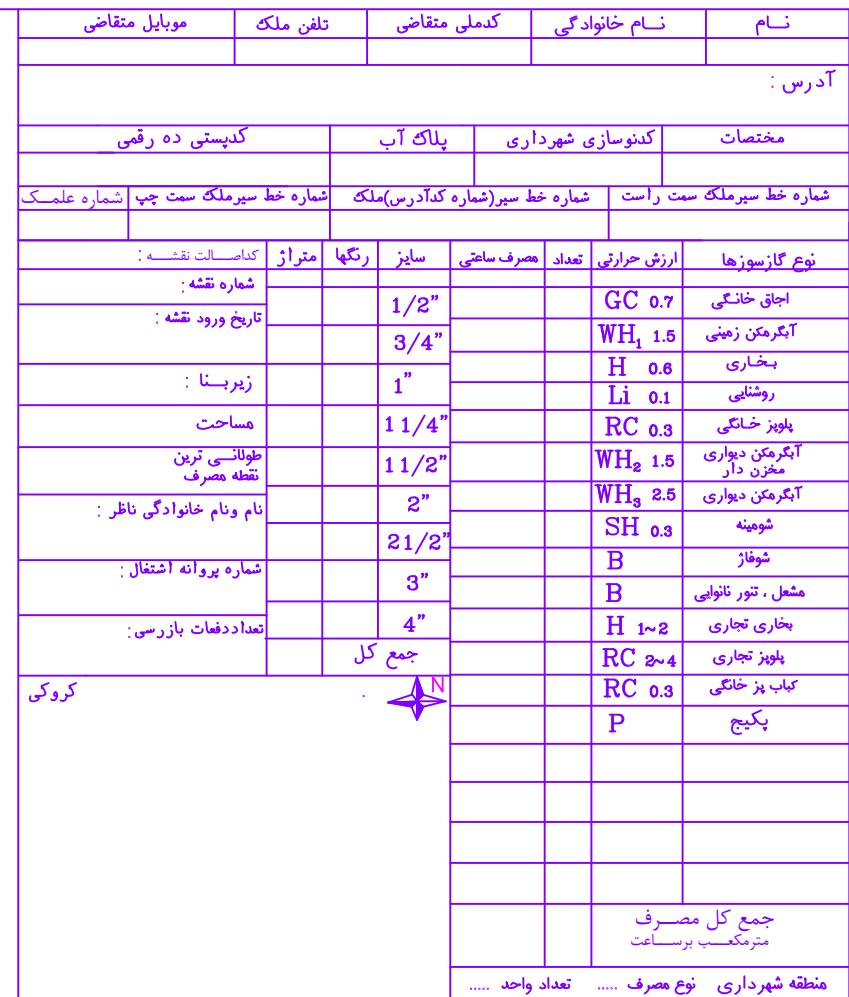 نــام نــام خانوادگی کدملی متقاضی تلفن ملک موبایل متقاضی
آدرس :
مختصات کدنوسازی شهرداری پلاک آب کدپستی ده رقمی
شماره خط سیرملک سمت راست شماره خط سیر(شماره کدآدرس)ملک شماره خط سیرملک سمت چپ شماره علمــک
نوع گازسوزها ارزش حرارتی تعداد مصرف ساعتی
اجاق خانـگی GC 0.7
آبگرمکن زمینی WH₁ 1.5
بـخـاری H 0.6
روشنایی Li 0.1
پلوپز خـانگی RC 0.3
آبگرمکن دیواری مخزن دار WH₂ 1.5
آبگرمکن دیواری WH₃ 2.5
شومینه SH 0.3
شوفاژ B
مشعل ، تنور نانوایی B
بخاری تجاری H 1~2
پلوپز تجاری RC 2~4
کباب پز خانگی RC 0.3
پکیج P
جمع کل مصـــرف
مترمکعــب برســاعت
منطقه شهرداری نوع مصرف ..... تعداد واحد .....
سایز رنگها متراژ
1/2"
3/4"
1"
1 1/4"
1 1/2"
2"
2 1/2"
3"
4"
جمع کل
کداصــالت نقشــه :
شماره نقشه :
تاریخ ورود نقشه :
زیربــنا :
مساحت
طولانــی ترین
نقطه مصرف
نام ونام خانوادگی ناظر :
شماره پروانه اشتغال :
تعداددفعات بازرسی :
کروکی
N